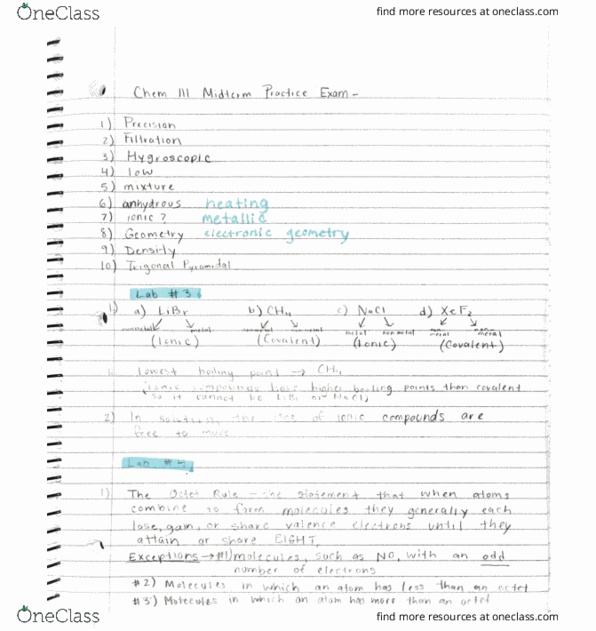 OneClass
find more resources at oneclass.com
Chem 111 Midterm Practice Exam -
1) Precision
2) Filtration
3) Hygroscopic
4) low
5) mixture
6) anhydrous heating
7) ionic ? metallic
8) Geometry electronic geometry
9) Density
10) Trigonal Pyramidal
Lab #3
1) a) LiBr b) CH4 c) NaCl d) XeF2
metal nonmetal
(Ionic) (Covalent) (Ionic) (Covalent)
lowest boiling point → CH4
(ionic compounds have higher boiling points than covalent
so it cannot be LiBr or NaCl)
2) In solution, the ions of ionic compounds are
free to move
Lab #5
1) The Octet Rule - the statement that when atoms
combine to form molecules they generally each
lose, gain, or share valence electrons until they
attain or share EIGHT.
Exceptions → #1) molecules, such as NO, with an odd
number of electrons
#2) Molecules in which an atom has less than an octet
#3) Molecules in which an atom has more than an octet
OneClass
find more resources at oneclass.com